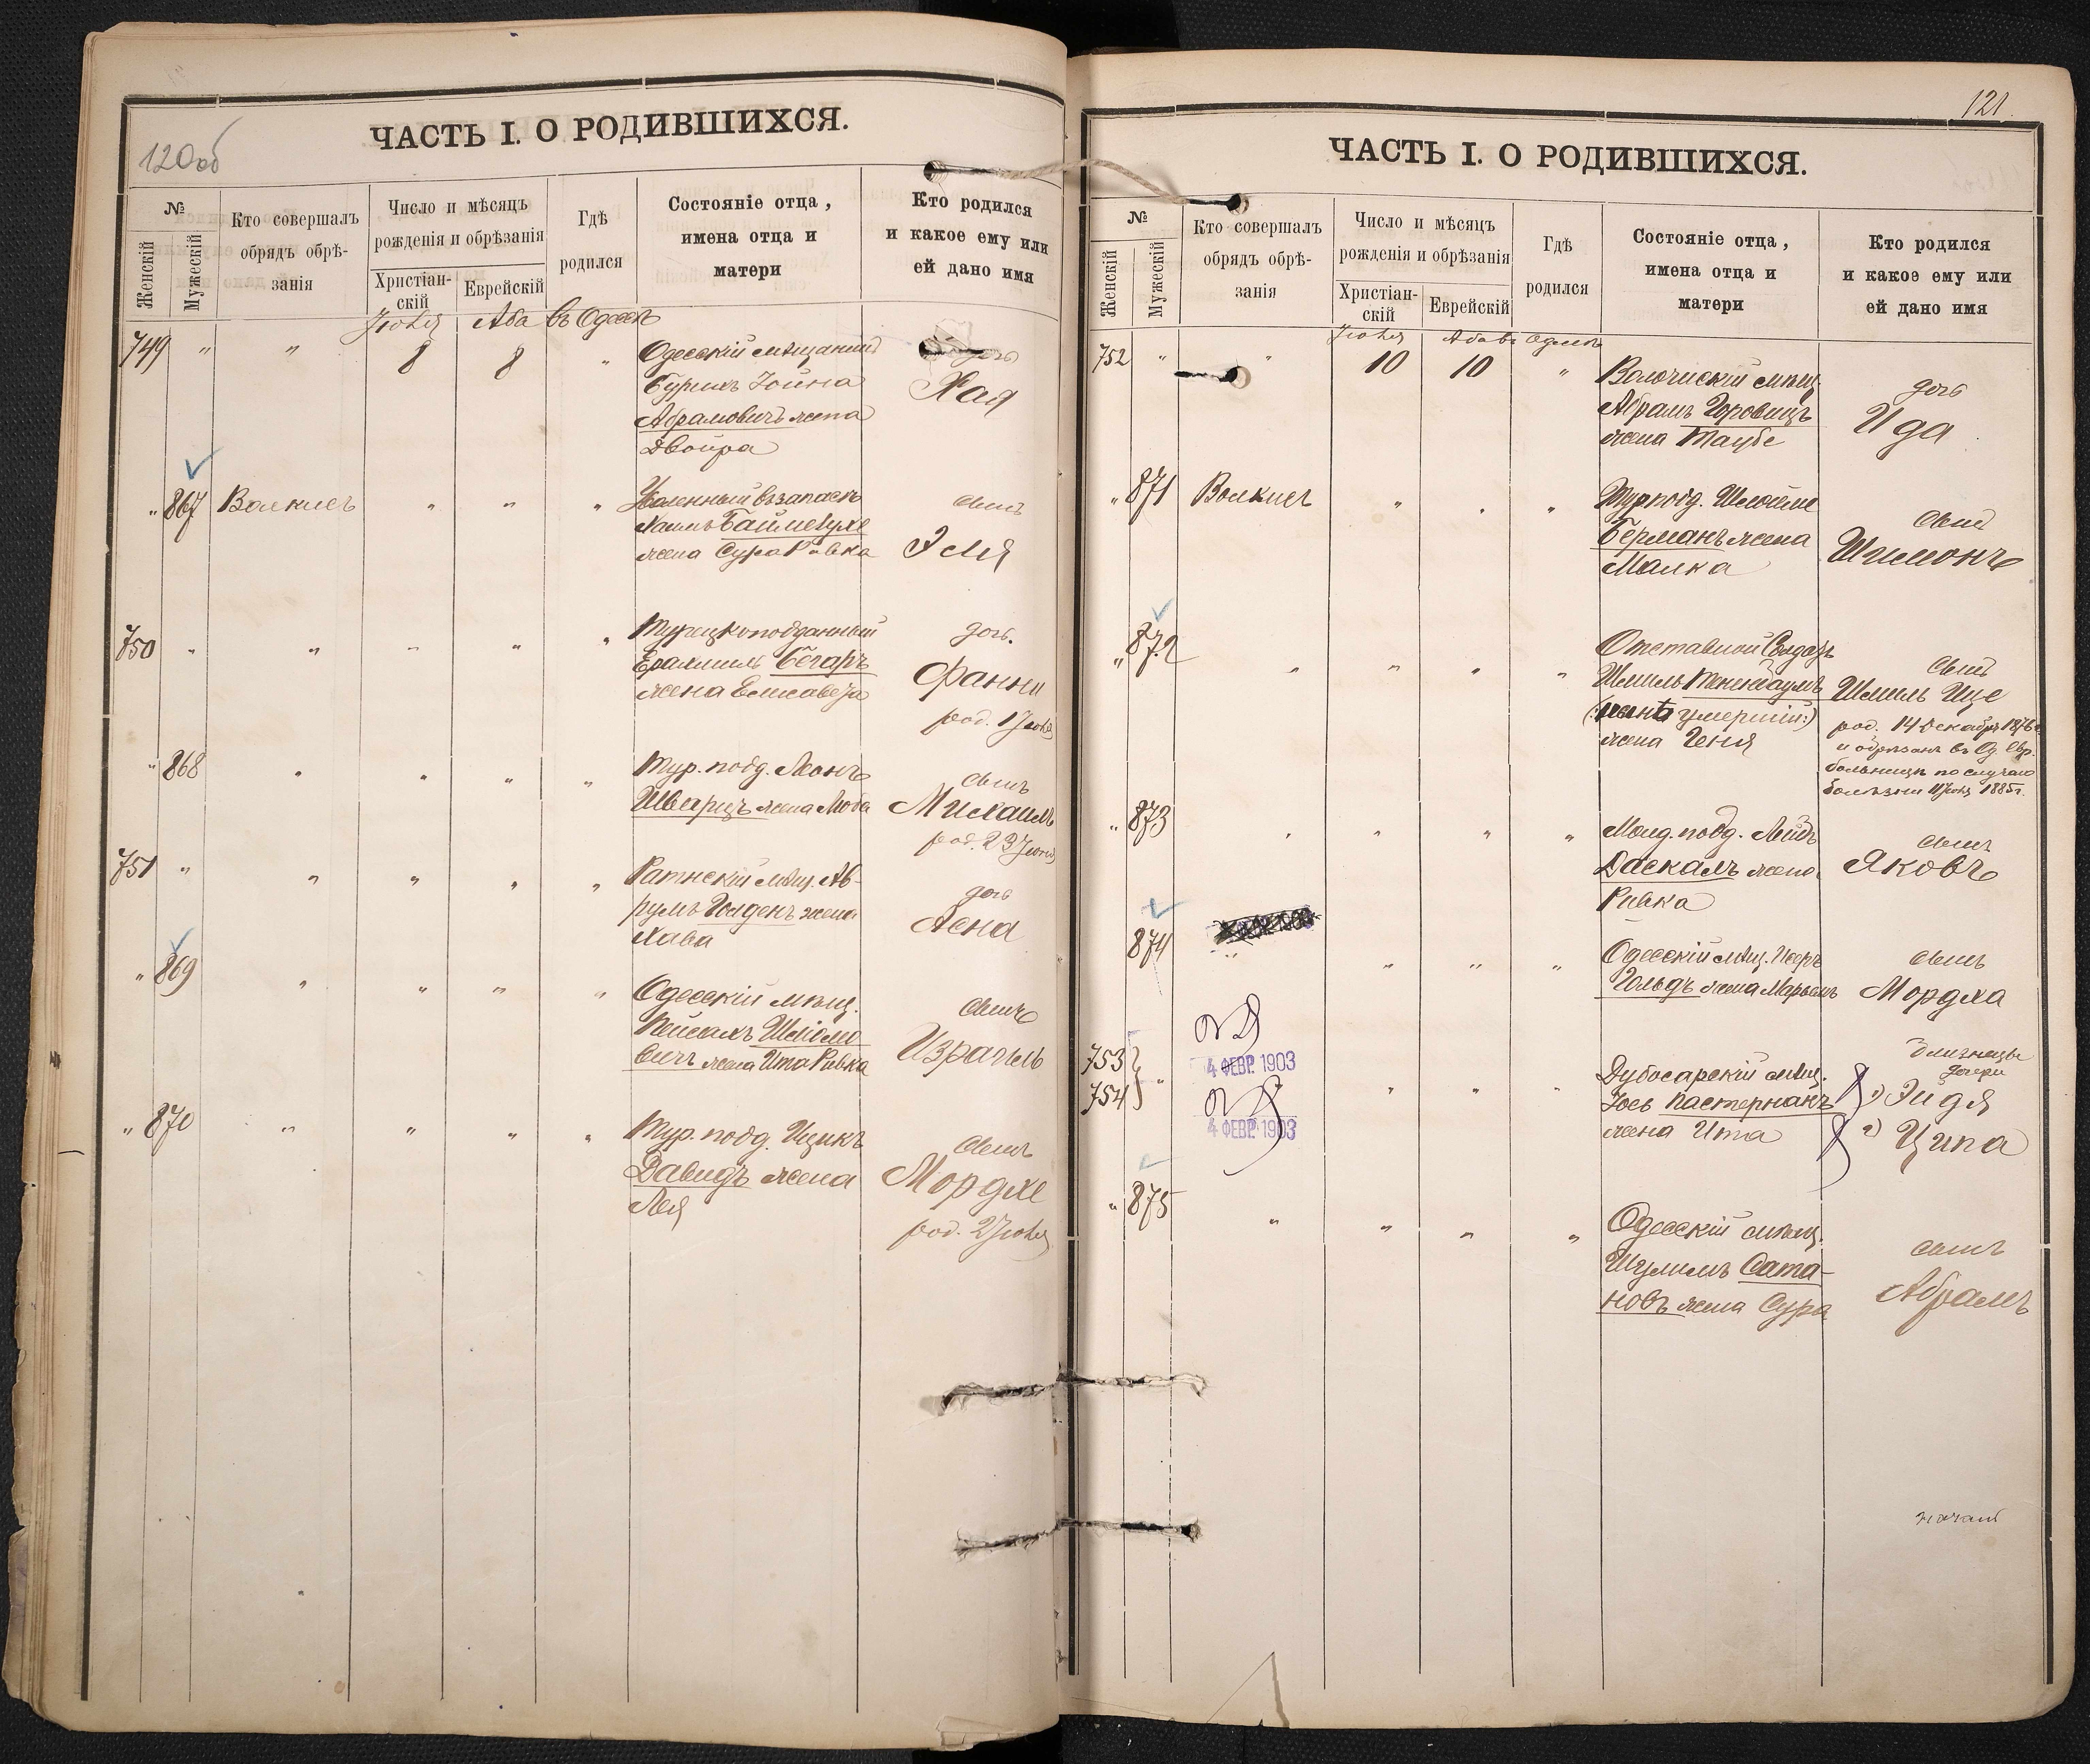 120об
ЧАСТЬ I. О РОДИВШИХСЯ.
№
Женскій
Мужескій
Кто совершалъ
обрядъ обрѣ-
занія
Число и мѣсяцъ
рожденія и обрѣзанія
Христіан-
скій
Еврейскій
Гдѣ
родился
Состояніе отца,
имена отца и
матери
Кто родился
и какое ему или
ей дано имя
Іюля Аба въ Одессѣ
749 " " 8 8 "
Одесскій мѣщанинъ
Іойна
Абрамовичъ жена
Двойра
дочь
Хая
" 867 Волкисъ " " "
Уволенный въ запасъ
Хаимъ
жена Сура Ривка
сынъ
Эля
750 " " " " "
Турецкоподданный
Ерахмиль Бегаръ
жена Елисавета
дочь.
Фанни
род. 1 Іюля
" 868 " " " "
Тур. подд. Леонъ
Шварцъ жена Люба
сынъ
Михаилъ
род. 23 Іюня
751 " " " " "
Ратнскій мѣщ. Аб-
румъ Голденъ жена
Хава
дочь
Асна
" 869 " " " "
Одесскій мѣщ.
Пейсахъ Шліомо
вичъ жена Ита Ривка
сынъ
Израиль
" 870 " " " "
Тур. подд. Ицикъ
Давидъ жена
Лея
сынъ
Мордхе
род. 2 Іюля
121
ЧАСТЬ I. О РОДИВШИХСЯ.
№
Женскій
Мужескій
Кто совершалъ
обрядъ обрѣ-
занія
Число и мѣсяцъ
рожденія и обрѣзанія
Христіан-
скій
Еврейскій
Гдѣ
родился
Состояніе отца,
имена отца и
матери
Кто родился
и какое ему или
ей дано имя
Іюля Аба въ Одессѣ
752 " " 10 10 "
Волочискій мѣщ.
Абрамъ Горовицъ
жена Таубе
дочь
Ида
" 871 Волкисъ " " "
Тур. подд. Шлойме
Берманъ жена
Малка
сынъ
Шимонъ
" 872 " " " "
Отставной Солдатъ
Шмиль Тененбаумъ
умершій:)
жена Геня
сынъ
Шмиль Ице
род. 14 Декабря 1876
и обрѣзанъ въ Од. Евр.
больницѣ по случаю
болѣзни Іюля 1885г.
" 873 " " " "
Молд. подд. Лейбъ
Даскалъ жена
Ривка
сынъ
Яковъ
874 " " " "
Одесскій мѣщ.
Гольдъ жена Марьямъ
сынъ
Мордха
753
4 ФЕВР. 1903
754 " " " "
4 ФЕВР. 1903
Дубосарскій мѣщ.
Іось Пастернакъ
жена Ита
близнецы
дочери
1) Эйдя
2) Ципа
" 875 " " " "
Одесскій мѣщ.
Шулимъ Сата-
новъ жена Сура
сынъ
Абрамъ